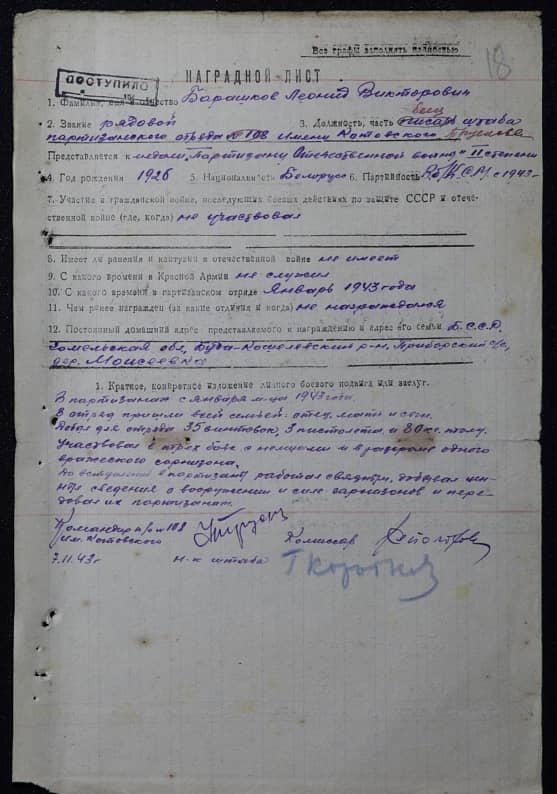 18
Все графы заполнять полностью
ПОСТУПИЛО
НАГРАДНОЙ ЛИСТ
1. Фамилия, имя и отчество Барашков Леонид Викторович
боец
2. Звание рядовой 3. Должность, часть писарь штаба
партизанского отряда № 108 имени Котовского
Представляется к медали „Партизану Отечественной войны" II степени
4. Год рождения 1926 5. Национальность Белорус 6. Партийность с 1943г
7. Участие в гражданской войне, последующих боевых действиях по защите СССР и отече-
ственной войне (где, когда) не участвовал
8. Имеет ли ранения и контузии в отечественной войне не имеет
9. С какого времени в Красной Армии не служил
10. С какого времени в партизанском отряде Январь 1943 года
11. Чем ранее награжден (за какие отличия и когда) не награждался
12. Постоянный домашний адрес представляемого к награждению и адрес его семьи Б.С.С.Р.
Гомельская обл, Буда-Кошелевский р-н, Приборский с/с,
дер. Моисеевка
1. Краткое, конкретное изложение личного боевого подвига или заслуг.
В партизанах с января м-ца 1943 года.
В отряд пришли всей семьей: отец, мать и сын.
для отряда 35 винтовок, 3 пистолета, и 80 кг. толу.
Участвовал в трех боях с немцами и в разгроме одного
вражеского гарнизона.
До вступления в партизаны работал связным, добывал цен-
ные сведения о вооружении и силе гарнизонов и пере-
давал их партизанам.
Командир п/о № 108
им. Котовского Комиссар
7.11.43 г Н-к штаба